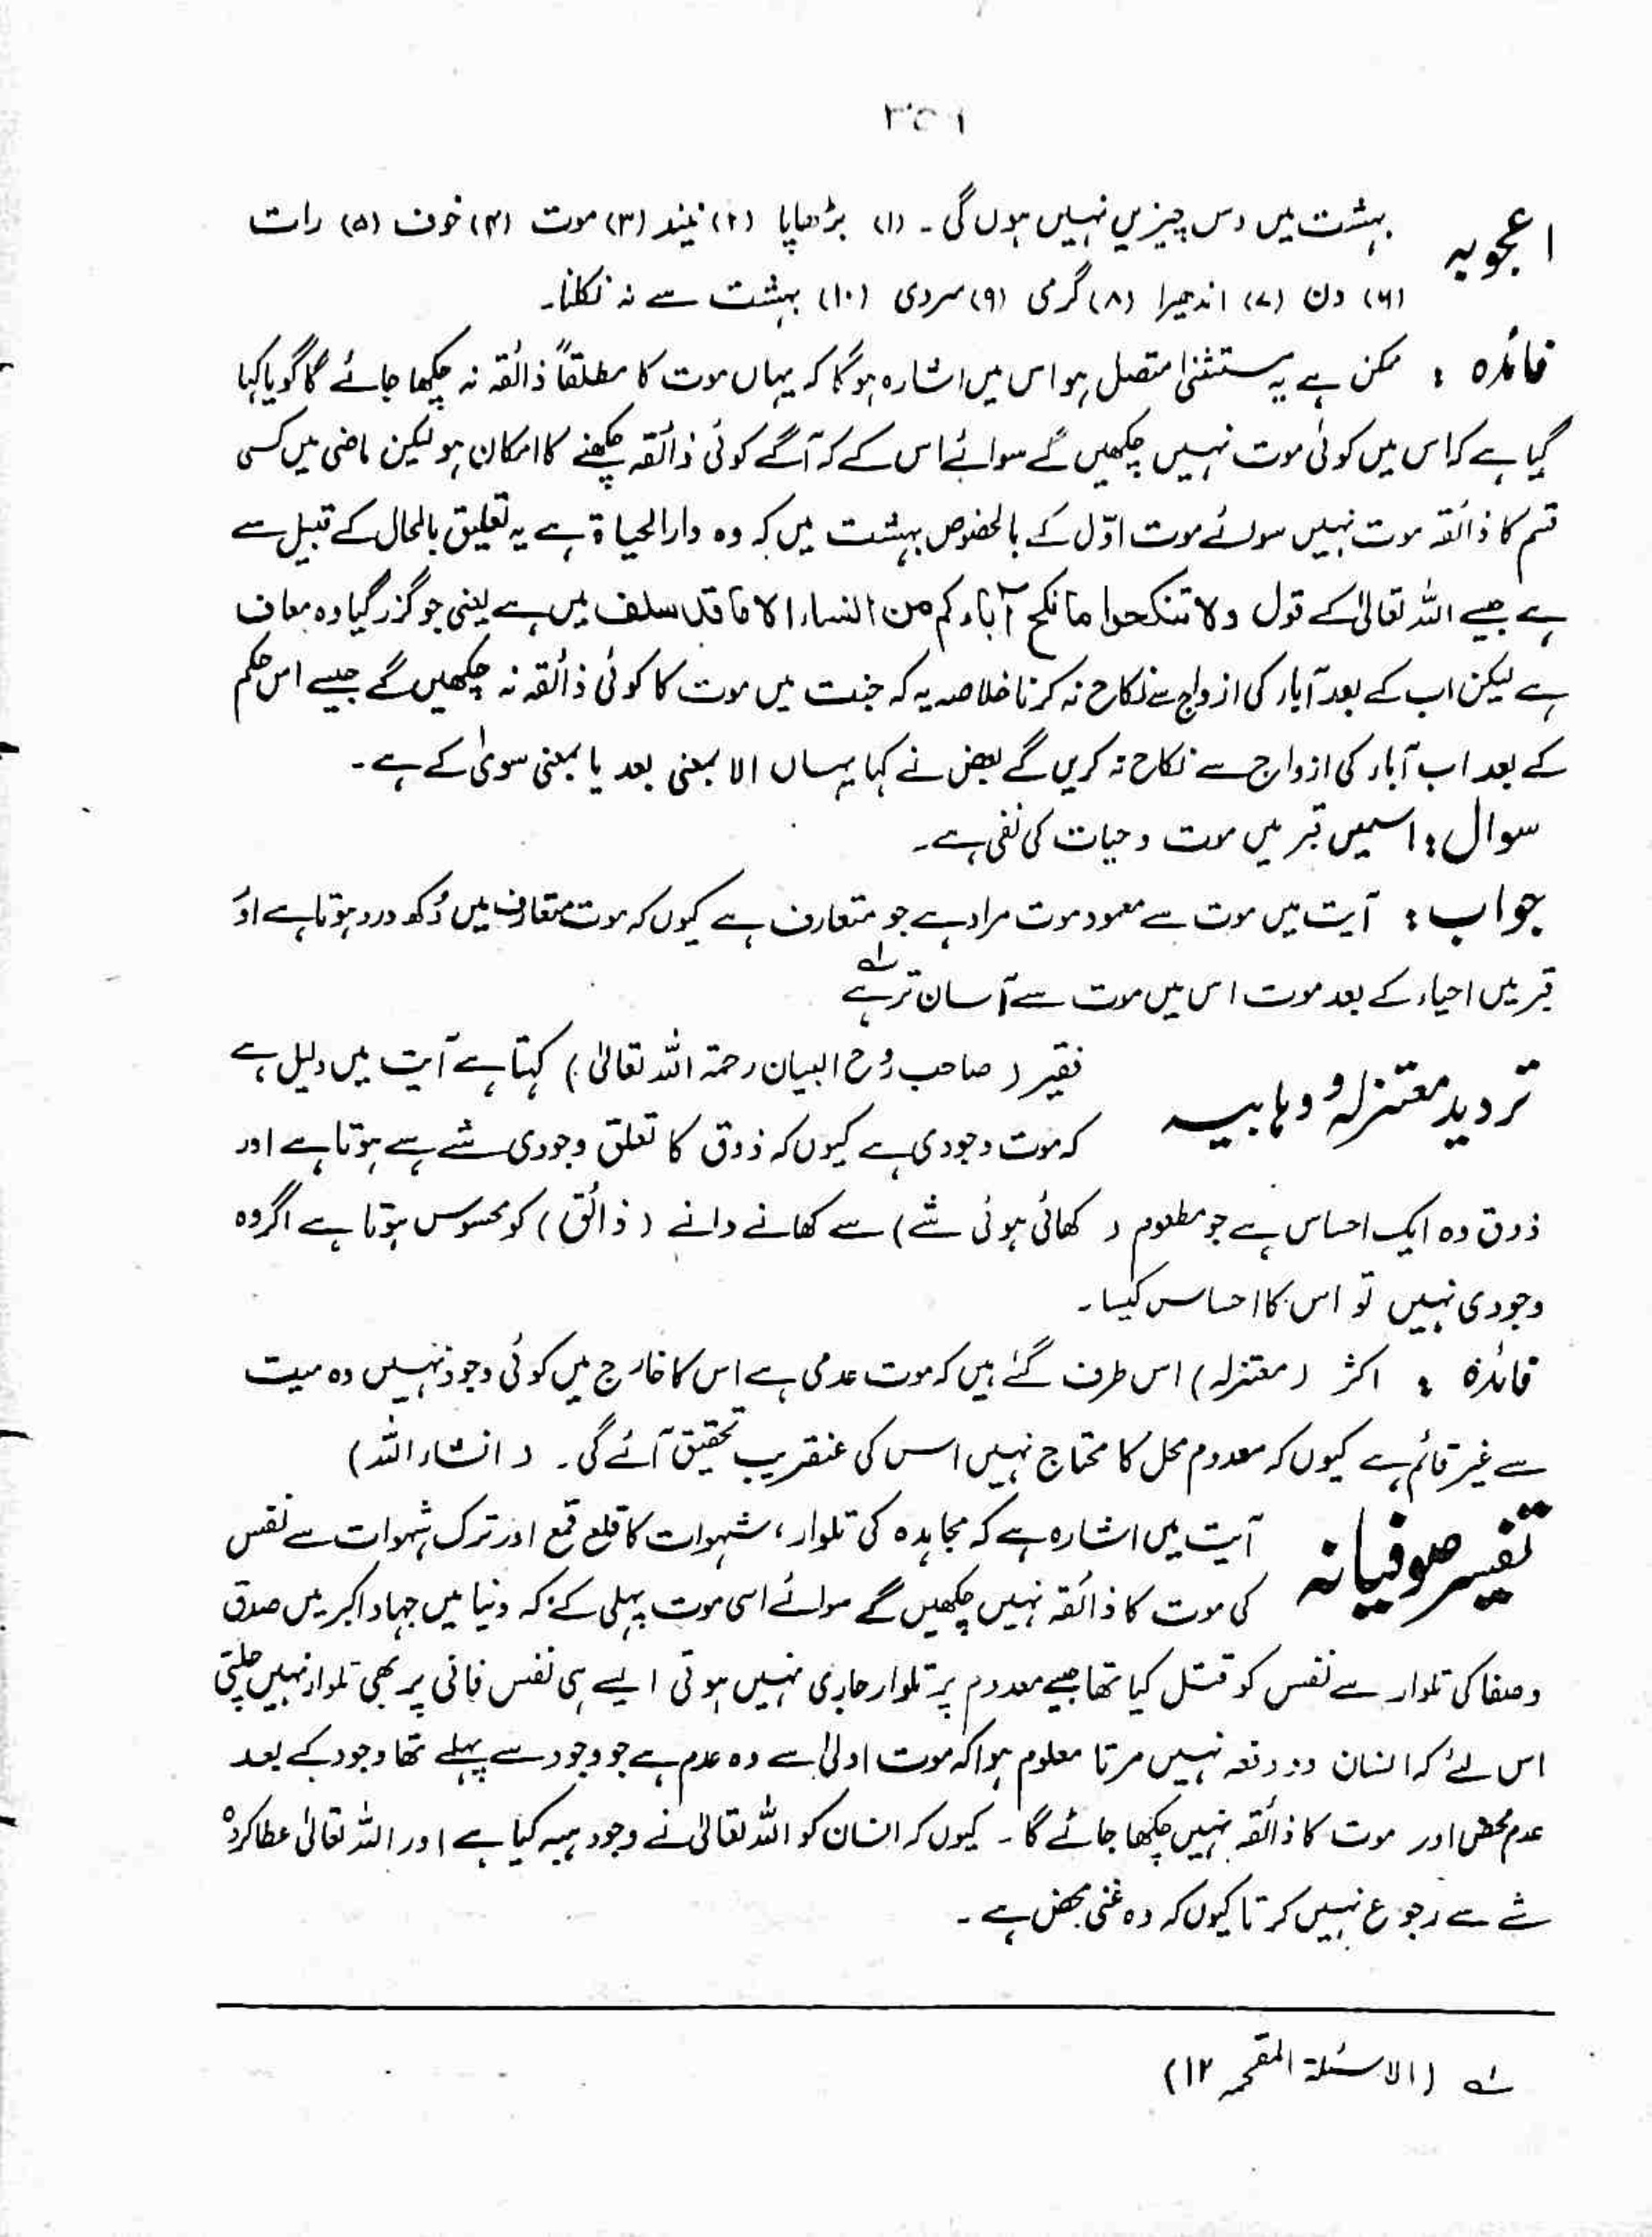 ۳۵۱
اعجوبہ بہشت میں دس چیزیں نہیں ہوں گی۔ (۱) بڑھاپا (۲) نیند (۳) موت (۴) خوف (۵) رات
(۶) دن (۷) اندھیرا (۸) گرمی (۹) سردی (۱۰) بہشت سے نہ نکلنا۔
فائدہ : ممکن ہے یہ مستثنیٰ متصل ہو اس میں اشارہ ہو گا کہ یہاں موت کا مطلقاً ذائقہ نہ چکھا جائے گا گویا کہا
گیا ہے کہ اس میں کوئی موت نہیں چکھیں گے سوائے اس کے کہ آگے کوئی ذائقہ چکھنے کا امکان ہو لیکن ماضی میں کسی
قسم کا ذائقہ موت نہیں سوائے موت اوّل کے بالخصوص بہشت میں کہ وہ دارالحیاۃ ہے یہ تعلیق بالمحال کے قبیل سے
ہے جیسے اللہ تعالیٰ کے قول ولا تنکحوا ما نکح آباؤکم من النساء الا ما قد سلف میں ہے یعنی جو گزر گیا وہ معاف
ہے لیکن اب کے بعد آباء کی ازواج سے نکاح نہ کرنا خلاصہ یہ کہ جنت میں موت کا کوئی ذائقہ نہ چکھیں گے جیسے اس حکم
کے بعد اب آباء کی ازواج سے نکاح نہ کریں گے بعض نے کہا یہاں الا بمعنی بعد یا بمعنی سویٰ کے ہے۔
سوال : اسمیں قبر میں موت و حیات کی نفی ہے۔
جواب : آیت میں موت سے معہود موت مراد ہے جو متعارف ہے کیوں کہ موت متعارف میں دُکھ درد ہوتا ہے اور
قبر میں احیاء کے بعد موت اس میں موت سے آسان تر ہے لہ
تردید معتزلہ و وہابیہ فقیر (صاحب رُوح البیان رحمۃ اللہ تعالیٰ) کہتا ہے آیت میں دلیل ہے
کہ موت وجودی ہے کیوں کہ ذوق کا تعلق وجودی شے سے ہوتا ہے اور
ذوق وہ ایک احساس ہے جو مطعوم (کھائی ہوئی شے) سے کھانے والے (ذائق) کو محسوس ہوتا ہے اگر وہ
وجودی نہیں تو اس کا احساس کیسا۔
فائدہ : اکثر (معتزلہ) اس طرف گئے ہیں کہ موت عدمی ہے اس کا خارج میں کوئی وجود نہیں وہ میت
سے غیر قائم ہے کیوں کہ معدوم محل کا محتاج نہیں اس کی عنقریب تحقیق آئے گی۔ (انشاء اللہ)
تفسیر صوفیانہ آیت میں اشارہ ہے کہ مجاہدہ کی تلوار، شہوات کا قلع قمع اور ترک شہوات سے نفس
کی موت کا ذائقہ نہیں چکھیں گے سوائے اسی موت پہلی کے کہ دنیا میں جہاد اکبر میں صدق
و صفا کی تلوار سے نفس کو قتل کیا تھا جیسے معدوم پر تلوار جاری نہیں ہوتی ایسے ہی نفس فانی پر بھی تلوار نہیں چلتی
اس لئے کہ انسان دو دفعہ نہیں مرتا معلوم ہوا کہ موت اولیٰ سے وہ عدم ہے جو وجود سے پہلے تھا وجود کے بعد
عدم محض اور موت کا ذائقہ نہیں چکھا جائے گا۔ کیوں کہ انسان کو اللہ تعالیٰ نے وجود ہبہ کیا ہے اور اللہ تعالیٰ عطا کردہ
شے سے رجوع نہیں کرتا کیوں کہ وہ غنی محض ہے۔
لہ (الاسئلۃ المقحمہ ۱۲)